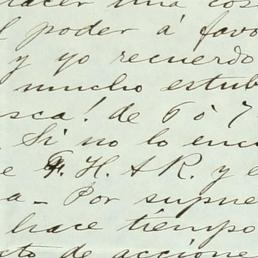 hacer una cos
l poder á favo
y yo recuerdo
mucho estub
sca! de 6 ó 7
Si no lo enc
e F. H. A R. y e
a – Por supue
hace tiempo
to de accione